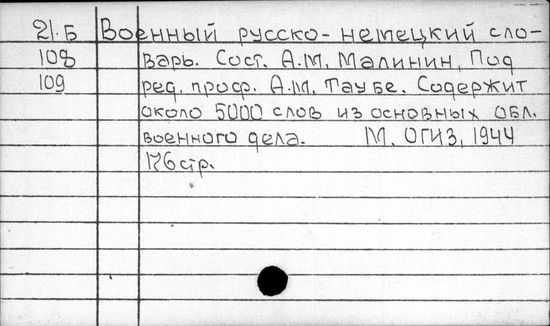 21.Б Военный русско-немецкий сло-
108 варь. Сост. А.М. Малинин, Под
109 ред. проф. А.М. Таубе. Содержит
около 5000 слов из основных обл.
военного дела. М. ОГИЗ, 1944
176 стр.